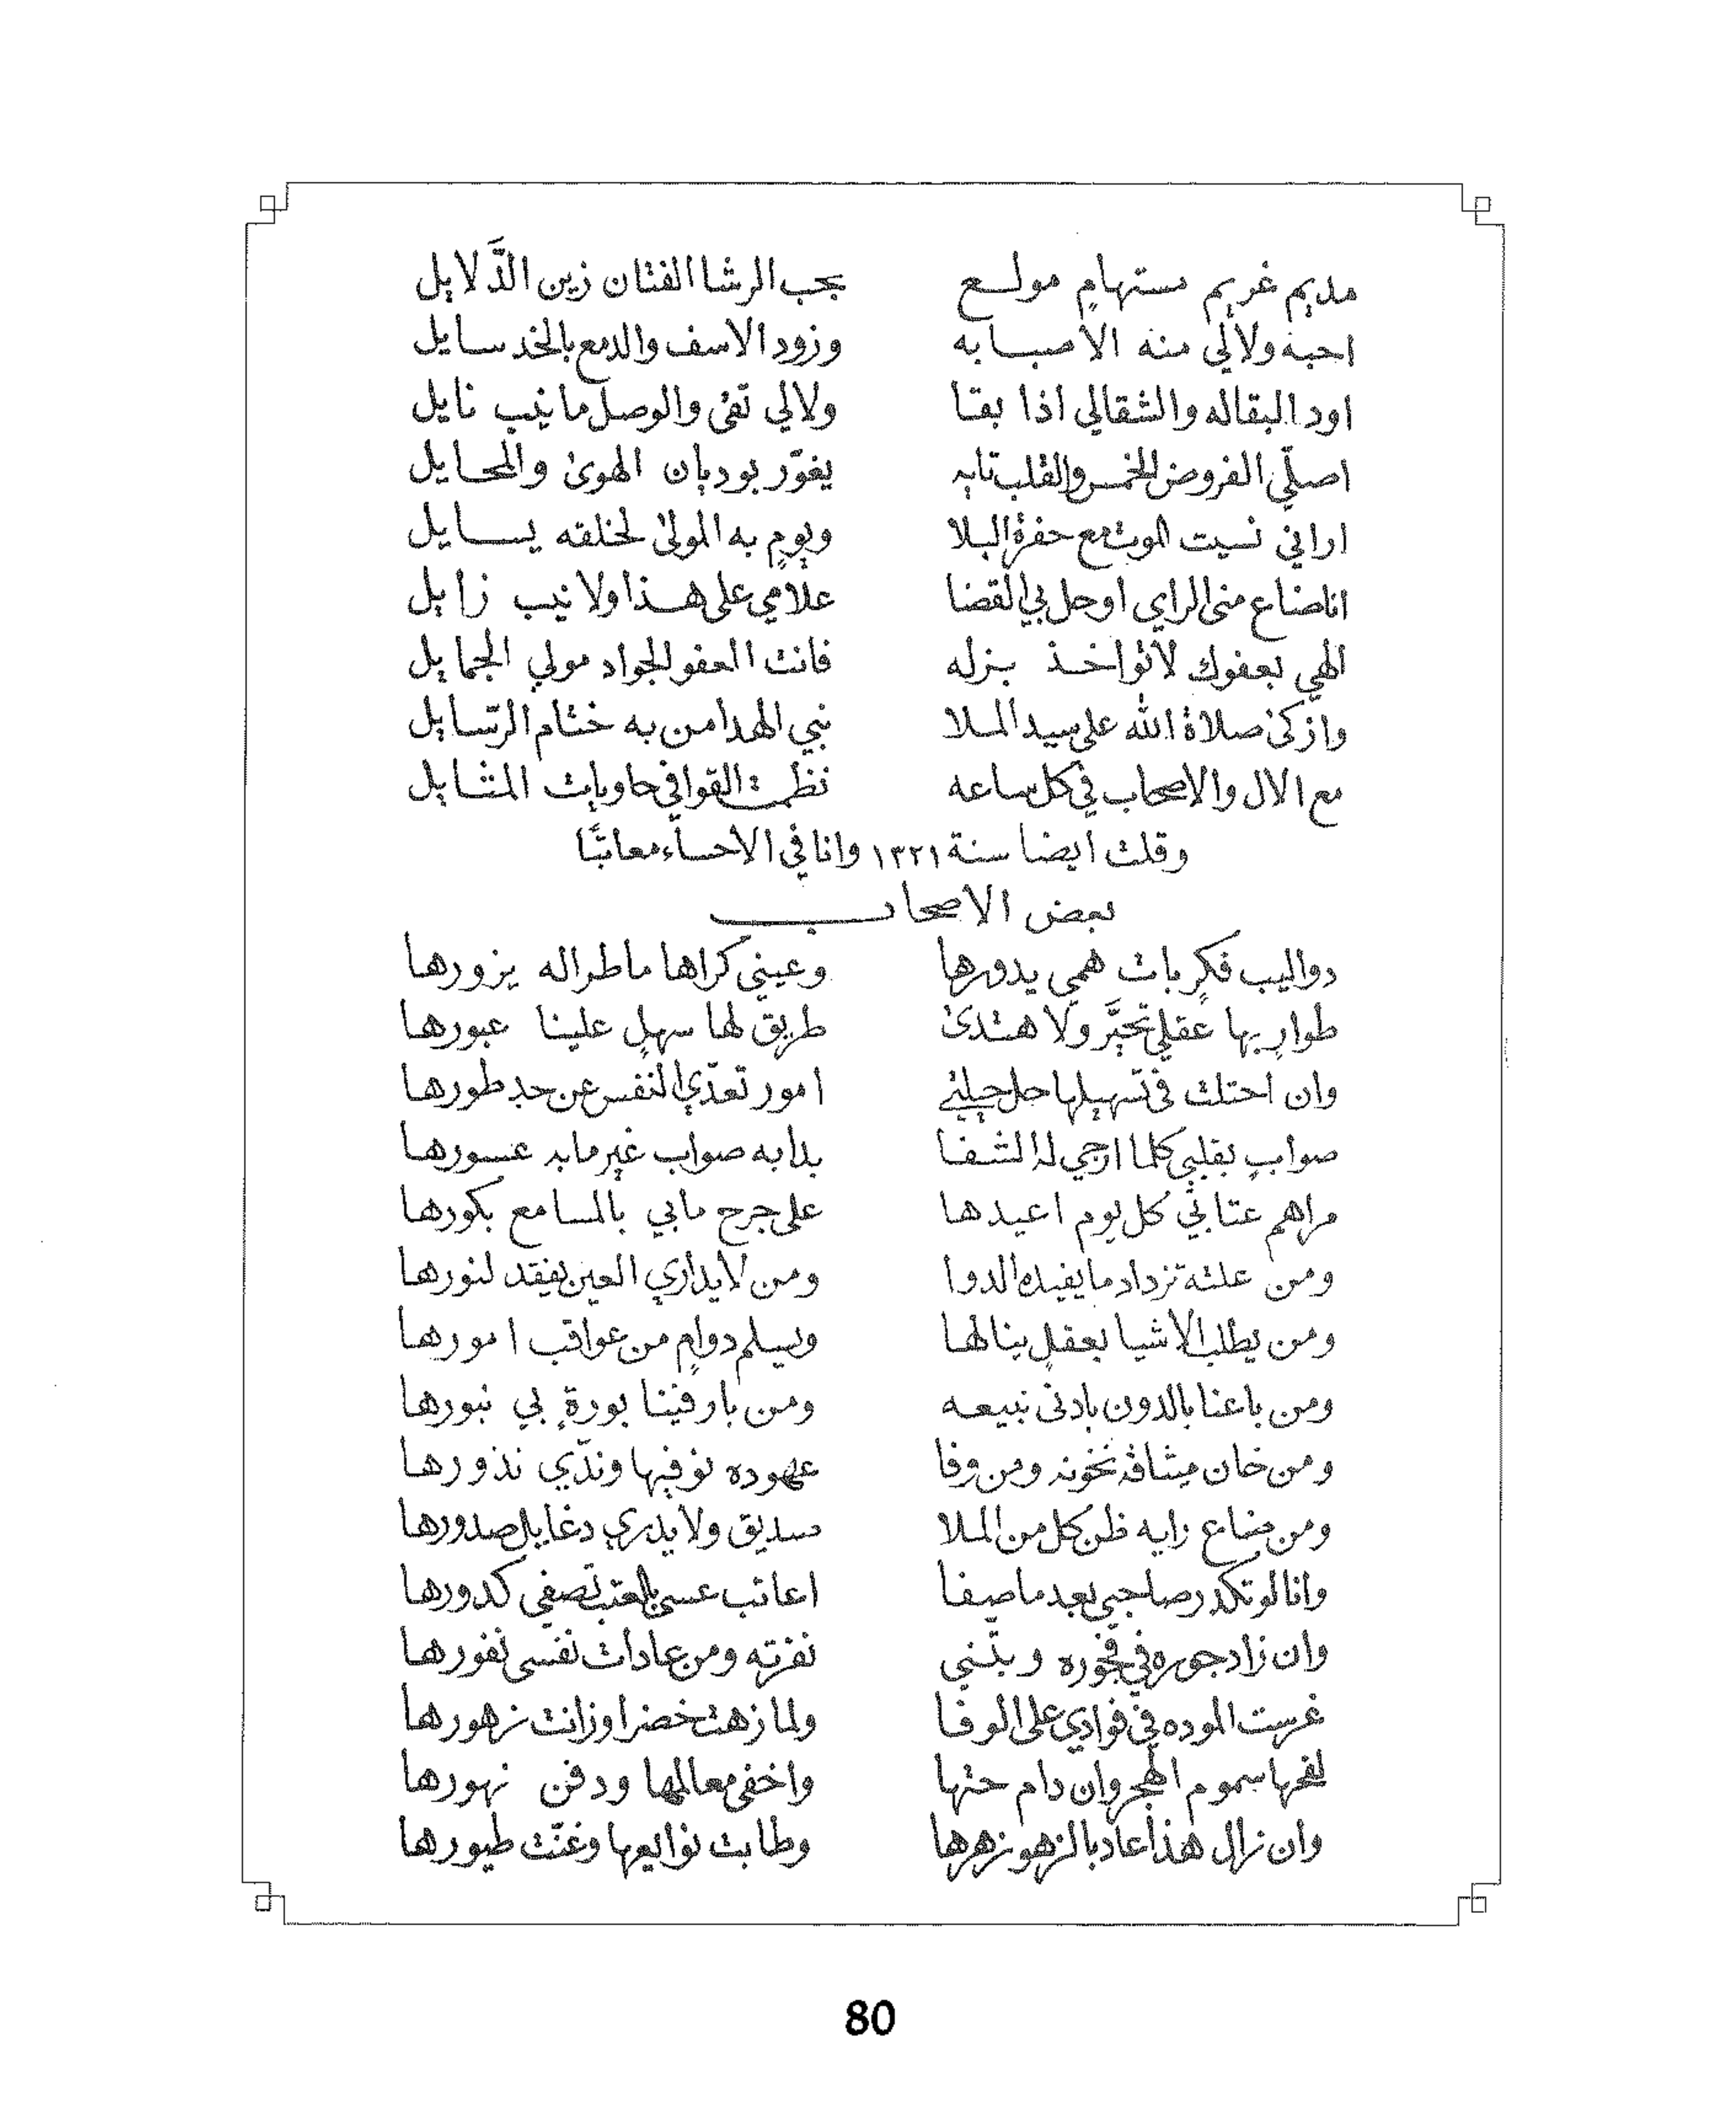 مديم غريم مستهامٍ مولع بحب الرشا الفتان زين الدَّلايل
احبه ولالي منه الا صبابه وزود الاسف والدمع بالخد سايل
اود البقاله والشقالي اذا بقا ولالي تقى والوصل ما نيب نايل
اصلّي الفروض الخمس والقلب تايه يغوّر بوديان الهوى والمحايل
اراني نسيت الموت مع حفرة البلا ويومٍ به المولى لخلقه يسايل
انا ضاع مني الراي او حل بي القضا علامي على هذا ولا نيب زايل
الهي بعفوك لا تواخذ بزله فانت العفو الجواد مولي الجمايل
وازكى صلاة الله على سيد الملا نبي الهدا من به ختام الرّسايل
مع الال والاصحاب في كل ساعه نظمت القوافي حاويات المثايل
وقلت ايضا سنة ١٣٢١ وانا في الاحساء معاتبًا
بعض الاصحاب
دواليب فكرٍ بات همي يدورها وعيني كراها ما طراله يزورها
طوارٍ بها عقلي تحيَّر ولا هتدى طريق لها سهلٍ علينا عبورها
وان احتلت في تسهيلها حل حيلتي امور تعدّي النفس عن حد طورها
صوابٍ بقلبي كلما ارجي له الشفا بدابه صواب غير مابه عسورها
مراهم عتابي كل يوم اعيدها على جرح مابي بالمسامع بكورها
ومن علته تزداد ما يفيده الدوا ومن لا يداري العين يفقد لنورها
ومن يطلب الاشيا بعقلٍ ينالها ويسلم دوامٍ من عواقب امورها
ومن باعنا بالدون بادنى نبيعه ومن بار فينا بورةٍ بي نبورها
ومن خان ميثاقه نخونه ومن وفا عهوده نوفيها وندّي نذورها
ومن ضاع رايه ظن كل من الملا صديق ولا يدري دغايل صدورها
وانا لو تكدر صاحبي بعد ما صفا اعاتب عسى بالعتب تصفي كدورها
وان زاد جوره في فجوره وبتّني نفرته ومن عادات نفسي نفورها
غرست الموده في فوادي على الوفا ولما زهت خضرا وزانت زهورها
لفحها سموم الهجر وان دام حتها واخفى معالمها ودفن نهورها
وان زال هذا عاد بالزهو زهرها وطابت نوايعها وغنّت طيورها
80